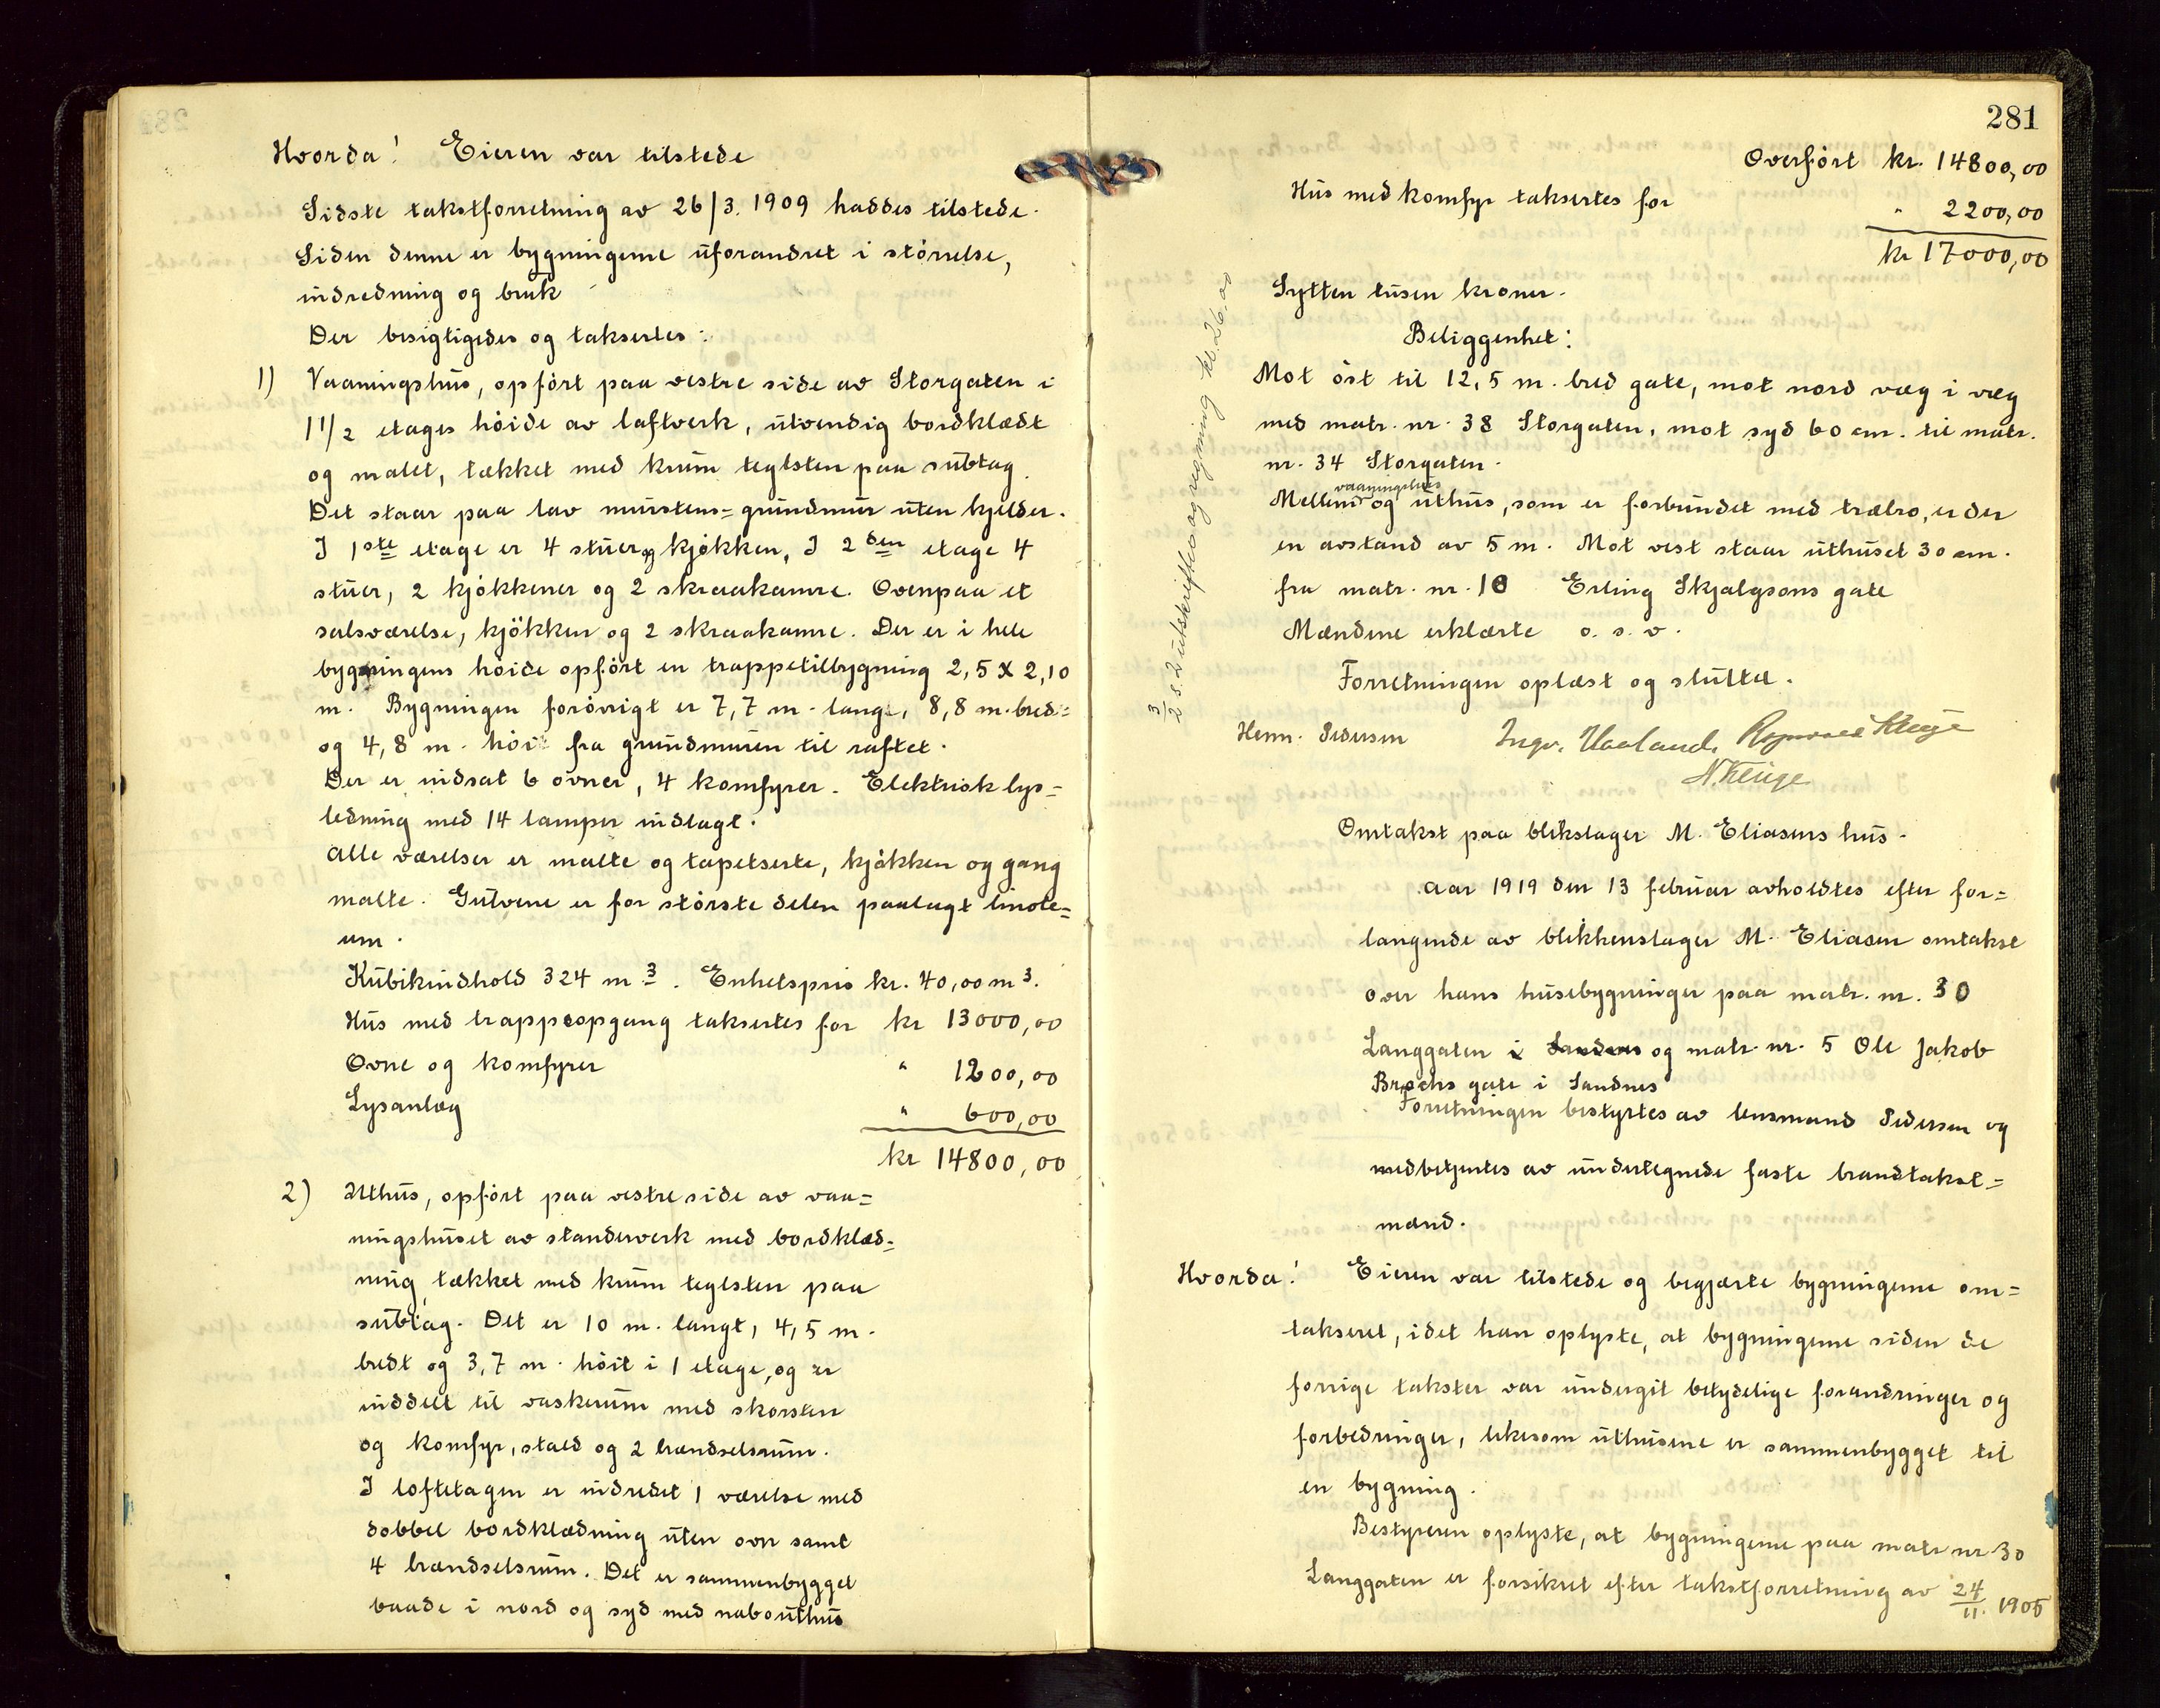 Hvorda! Eieren var tilstede
Sidste takstforretning av 26/3. 1909 haddes tilstede.
Siden denne er bygningerne uforandret i större­lse,
indredning og bruk
Der besigtigedes og taksertes:
1) Vaaningshus, opfört paa vestre side av Storgaten i
1 1/2 etages höide av laftverk, utvendig bordklædt
og malet, tækket med krum teglsten paa subtag.
Det staar paa lav murstens=grundmur uten kjelder.
I 1ste etage er 4 stuer og kjökken, I 2den etage 4
stuer, 2 kjökkener og 2 skraakamre. Ovenpaa et
salsværelse, kjökken og 2 skraakamre. Der er i hele
bygningens höide opfört en trappetilbygning 2,5 x 2,10
m. Bygningen forövrigt er 7,7 m. lang, 8,8 m. bred=
og 4,8 m. höi fra grundmuren til raftet.
Der er indsat 6 ovner, 4 komfyrer. Elektrisk lys=
ledning med 14 lamper indlagt.
Alle værelser er malte og tapetserte, kjökken og gang
malte. Gulvene er for störste delen paalagt linole=
um.
Kubikindhold 324 m3. Enhetspris kr. 40,00 m3.
Hus med trappeopgang taksertes for kr 13000,00
Ovne og komfyrer " 1200,00
Lysanlæg " 600,00
kr 14800,00
2) Uthus, opfört paa vestre side av vaa=
ningshuset av standerverk med bordklæd=
ning, tækket med krum teglsten paa
subtag. Det er 10 m. langt, 4,5 m.
bredt og 3,7 m. höit i 1 etage, og er
inddelt til vaskerum med skorsten
og komfyr, stald og 2 brændselsrum.
I loftetagen er indredet 1 værelse med
dobbel bordklædning uten ovn samt
4 brændselsrum. Det er sammenbygget
baade i nord og syd med nabouthus
281
Overfört kr. 14800,00
Hus med komfyr taksertes for " 2200,00
kr 17000,00
Sytten tusen kroner.
Beliggenhet:
Mot öst til 12,5 m. bred gate, mot nord væg i væg
med matr. nr. 38 Storgaten, mot syd 60 cm. til matr.
nr. 34 Storgaten.
Mellem vaaningshus og uthus, som er forbundet med træbro, er der
en avstand av 5 m. Mot vest staar uthuset 30 cm.
fra matr. nr. 10 Erling Skjalgsons gate
Mændene erklærte o. s. v.
Forretningen oplæst og sluttet.
Henr. Pedersen Ingv. Haaland. Rasmus Kluge
N. Kluge
3/2 s. 2 utskrifter og regning kr. 26.00
Omtakst paa blikslager M. Eliasens hus.
Aar 1919 den 13 februar avholdtes efter for=
langende av blikkenslager M. Eliasen omtakst
over hans husebygninger paa matr. nr. 30
Langgaten i Sandnes og matr. nr. 5 Ole Jakob
Brochs gate i Sandnes
Forretningen bestyrtes av lensmand Pedersen og
medbetjentes av undertegnede faste brandtakst=
mænd.
Hvorda! Eieren var tilstede og begjærte bygningerne om=
takseret, idet han oplyste, at bygningerne siden de
forrige takster var undergit betydelige forandringer og
forbedringer, likesom uthusene er sammenbygget til
en bygning.
Bestyreren oplyste, at bygningerne paa matr nr 30
Langgaten er forsikret efter takstforretning av 24/11. 1905